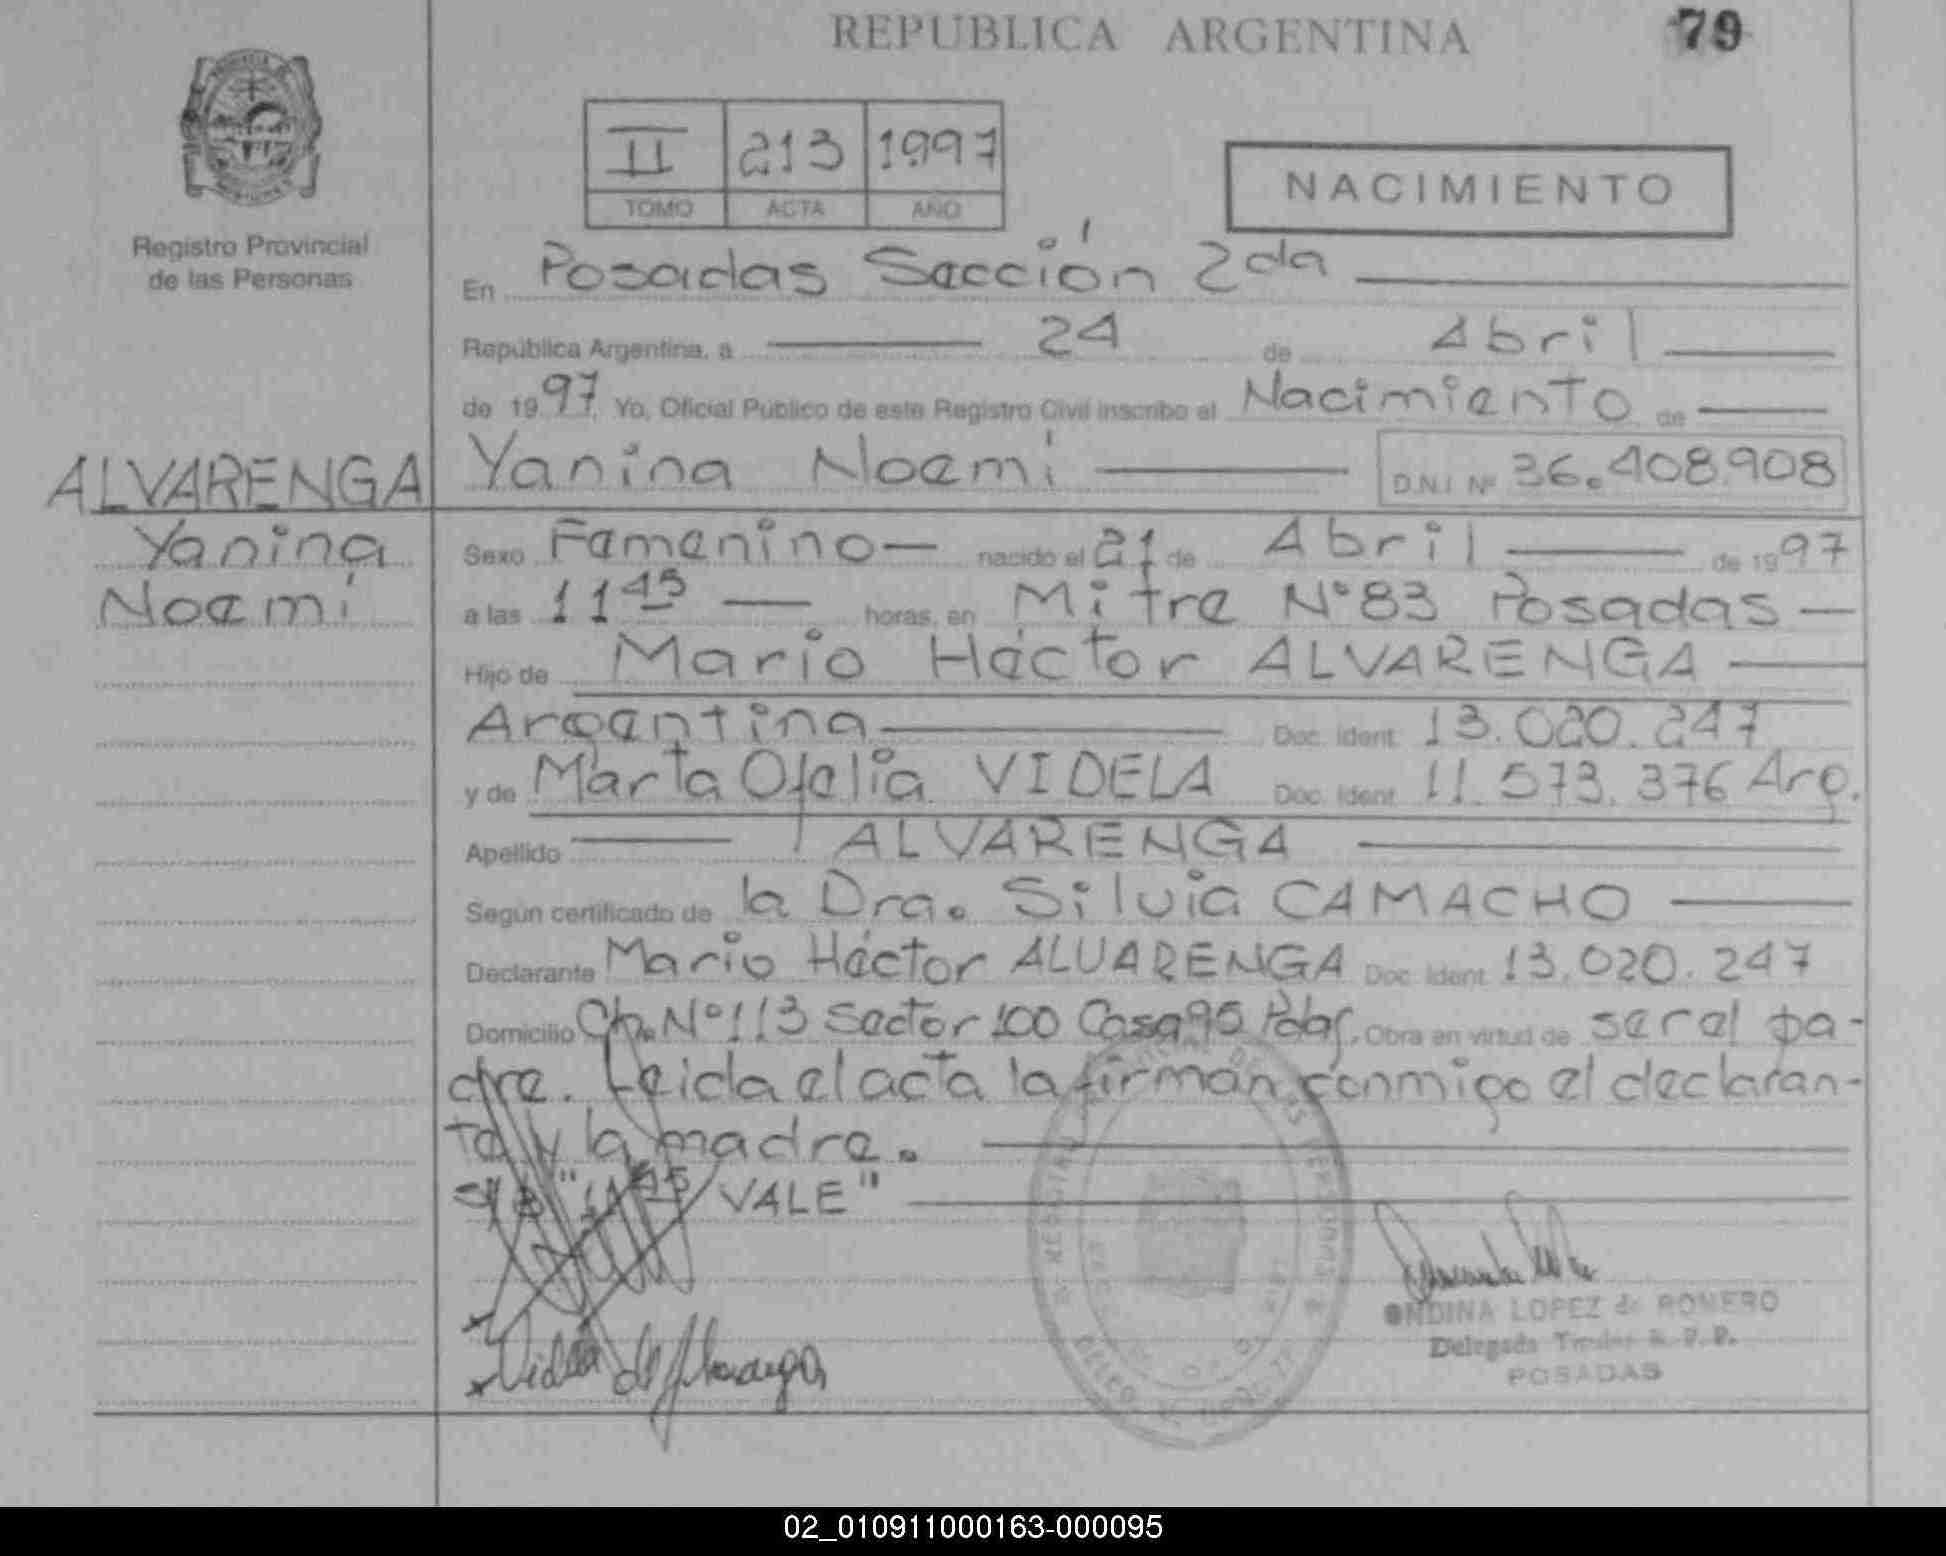 REPUBLICA ARGENTINA
79
II 213 1997
TOMO ACTA AÑO
NACIMIENTO
Registro Provincial
de las Personas
En Posadas Sección 2da
República Argentina, a 24 de Abril
de 1997, Yo, Oficial Público de este Registro Civil inscribo el Nacimiento de
ALVARENGA
Yanina
Noemí
Yanina Noemí D.N.I Nº 36.408.908
Sexo Femenino nacido el 21 de Abril de 1997
a las 11 45 horas, en Mitre Nº 83 Posadas
Hijo de Mario Héctor ALVARENGA
Argentina Doc. Ident. 13.020.247
y de Marta Ofelia VIDELA Doc. Ident. 11.573.376 Arg.
Apellido ALVARENGA
Según certificado de la Dra. Silvia CAMACHO
Declarante Mario Héctor ALVARENGA Doc. Ident. 13.020.247
Domicilio Ch. Nº 113 Sector 100 Casa 95 Pdas. Obra en virtud de ser el pa-
dre. Leida el acta la firman conmigo el declaran-
te y la madre.
"11 45 VALE"
Videla de Alvarenga
ONDINA LOPEZ de ROMERO
Delegada Titular R. P. P.
POSADAS
02_010911000163-000095